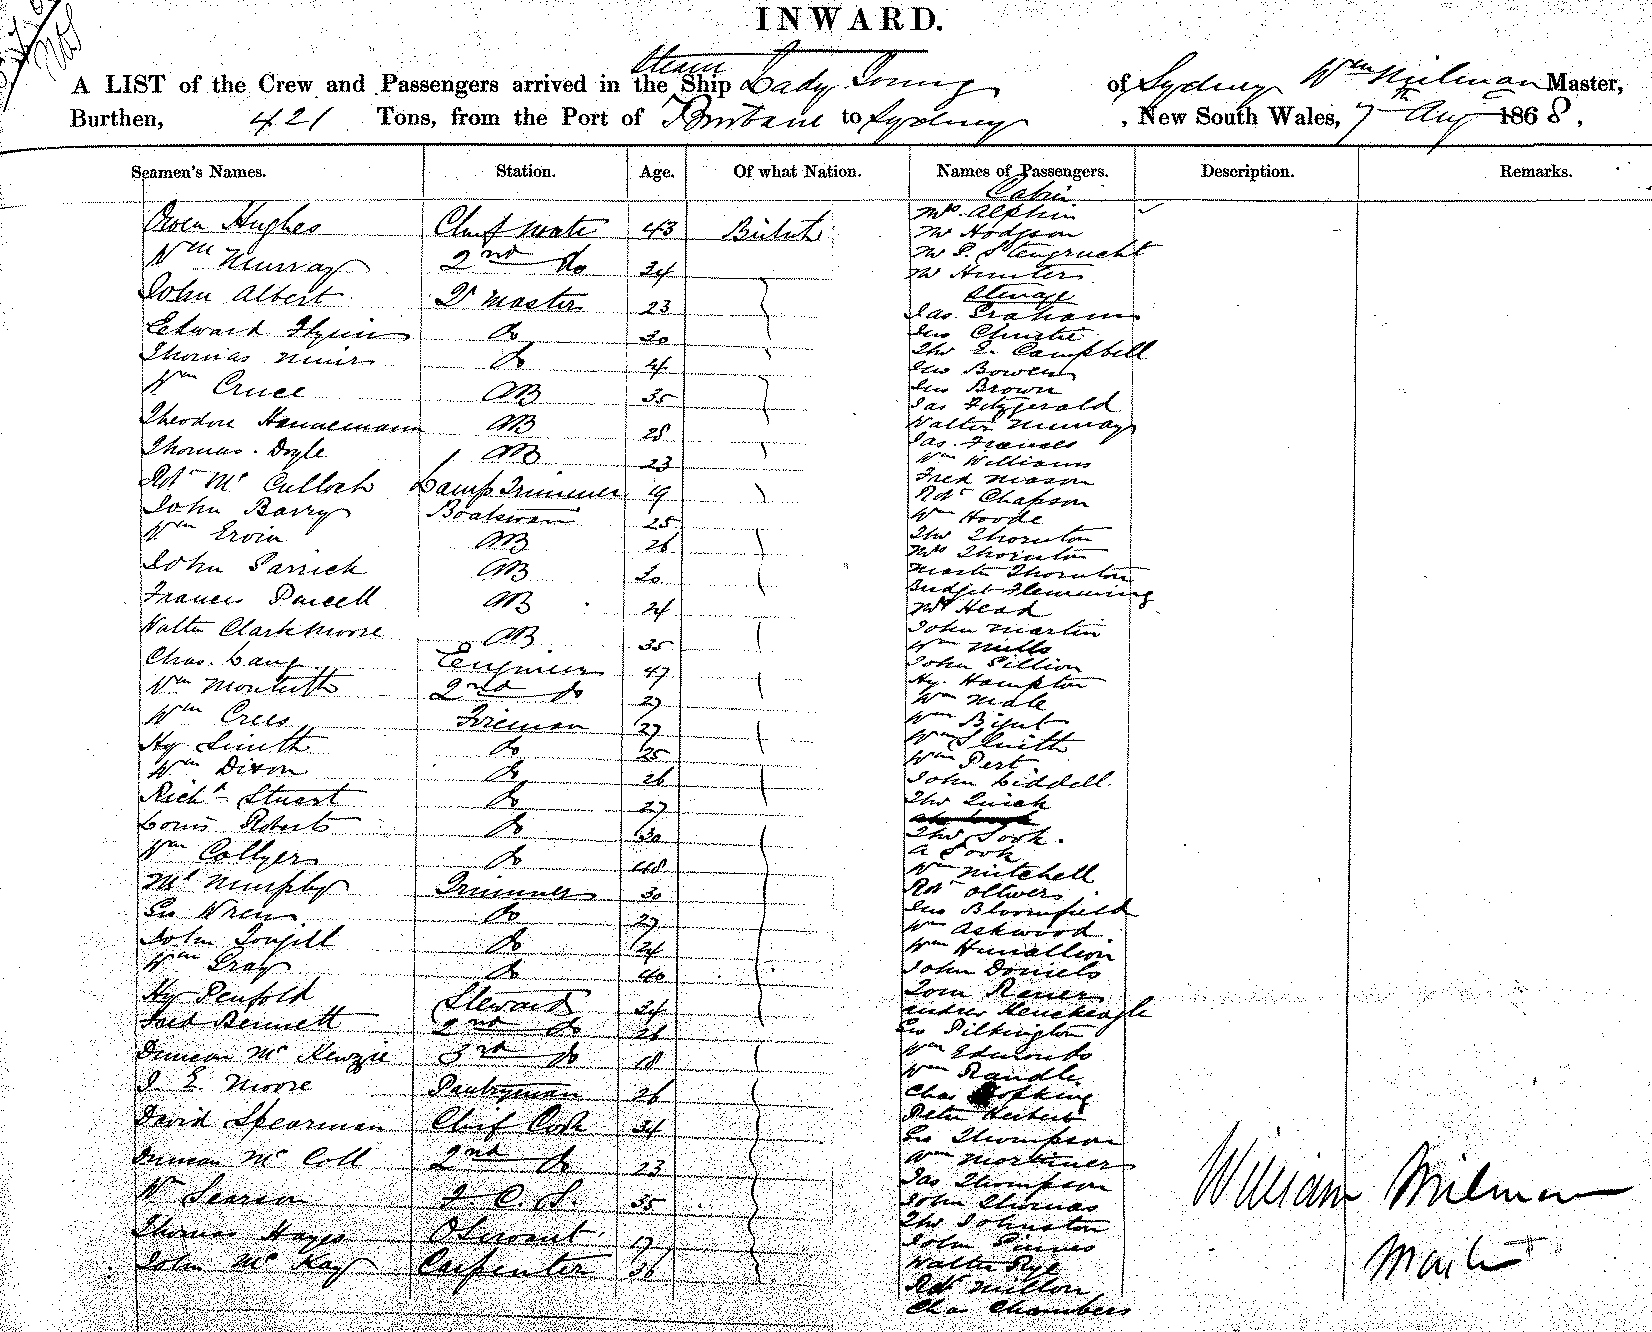 INWARD.
A LIST of the Crew and Passengers arrived in the Ship Steam Lady Young of Sydney Wm Milman Master,
Burthen, 421 Tons, from the Port of Brisbane to Sydney, New South Wales, 7th Aug 1868.
Seamen's Names. Station. Age. Of what Nation. Names of Passengers. Description. Remarks.
Owen Hughes Chief Mate 43 British
Wm Murray 2nd do 34
John Albert Qr Master 23
Edward Flynn do 30
Thomas Muir do
Wm Cruce AB 35
Theodore Hannemann AB 28
Thomas Doyle AB 23
Robt Mc Culloch Lamp Trimmer 19
John Barry Boatswain 25
Wm Ervin AB 26
John AB
Francis Purcell AB 24
Walter Clarkmoore AB 35
Chas. Lang Engineer 47
Wm Monteith 2nd do 27
Wm Crees Fireman 27
Hy Smith do 25
Wm Dixon do 26
Richd Stuart do 27
Louis Roberts do 30
Wm Collyer do 48
Ml Murphy Trimmer 30
Geo Wren do 27
John do 24
Wm Gray do 40
Hy Penfold Steward 34
Fred Bennett 2nd do 26
Duncan Mc Kenzie 3rd do 18
J E Moore Pantryman 26
David Spearman Chief Cook 34
Duncan Mc Coll 2nd do 23
W Pearson 35
Thomas Hayes Servant 17
John Mc Kay Carpenter 36
Cabin
Mrs Alphin
Mr Hodgson
Mr
Mr Hunter
Steerage
Jas. Graham
Geo Christie
Thos E. Campbell
Geo Bowen
Geo Brown
Jas Fitzgerald
Walter Murray
Jas. Frances
Wm Williams
Fred Mason
Robt Chapson
Wm Hoode
Thos Thornton
Mrs Thornton
Master Thornton
Bridget Flemming
Mrs Head
John Martin
Wm Mills
John Gillion
Hy. Hampton
Wm Male
Wm
Wm Smith
Wm Pert
John Liddell
Thos Quick
Thos Took.
A Took
Wm Mitchell
Robt Olivers
Geo Bloomfield
Wm Askwood
Wm
John Daniels
Tom
Andrew
Geo Pilkington
Wm Edmonds
Wm Randle
Chas Hopking
Peter Herbert
Geo Thompson
Wm Mortimer
Jas Thompson
John Thomas
Thos Johnston
John
Walter Rye
Robt Milton
Chas Chambers
William Milman
Master